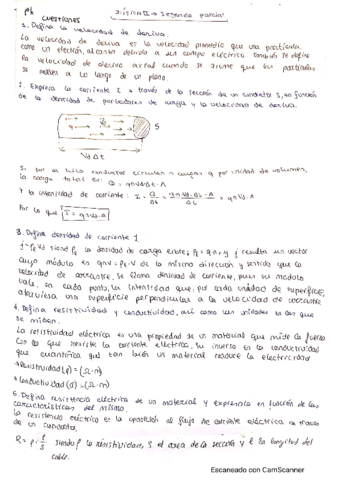 CUESTIONES
Física II → Segundo parcial
1. Define la velocidad de deriva.
La velocidad de deriva es la velocidad promedio que una partícula,
como un electrón, alcanza debido a un campo eléctrico. También se define
la velocidad de deriva axial cuando se asume que las partículas
se mueven a lo largo de un plano.
2. Expresa la corriente I a través de la sección de un conductor S, en función
de la densidad de portadores de carga y la velocidad de deriva.
S
Vd Δt
Si por el hilo conductor circulan n cargas q por unidad de volumen,
la carga total es: Q = q n Vd Δt · A
Y la intensidad de corriente: I = Q/Δt = q n Vd · Δt · A / Δt = q n Vd · A
Por lo que I = q n Vd · A
3. Define densidad de corriente J
siendo ρ la densidad de carga
cuyo módulo es q n v = ρ · V de la misma dirección y sentido que la
velocidad de corriente, se llama densidad de corriente, pues su módulo
vale, en cada punto, la intensidad que, por cada unidad de superficie,
atraviesa una superficie perpendicular a la velocidad de corriente
4. Define resistividad y conductividad, así como las unidades en las que
se miden.
La resistividad eléctrica es una propiedad de un material que mide la fuerza
con la que resiste la corriente eléctrica, su inverso es la conductividad
que cuantifica qué tan bien un material conduce la electricidad
→ Resistividad (ρ) = (Ω · m)
→ Conductividad (σ) = (Ω · m)
5. Define resistencia eléctrica de un material y expresarla en función de las
características del mismo.
La resistencia eléctrica es la oposición al flujo de corriente eléctrica a través
de un conductor.
R = ρ · l/S siendo ρ la resistividad, S el área de la sección y l la longitud del
cable.
Escaneado con CamScanner